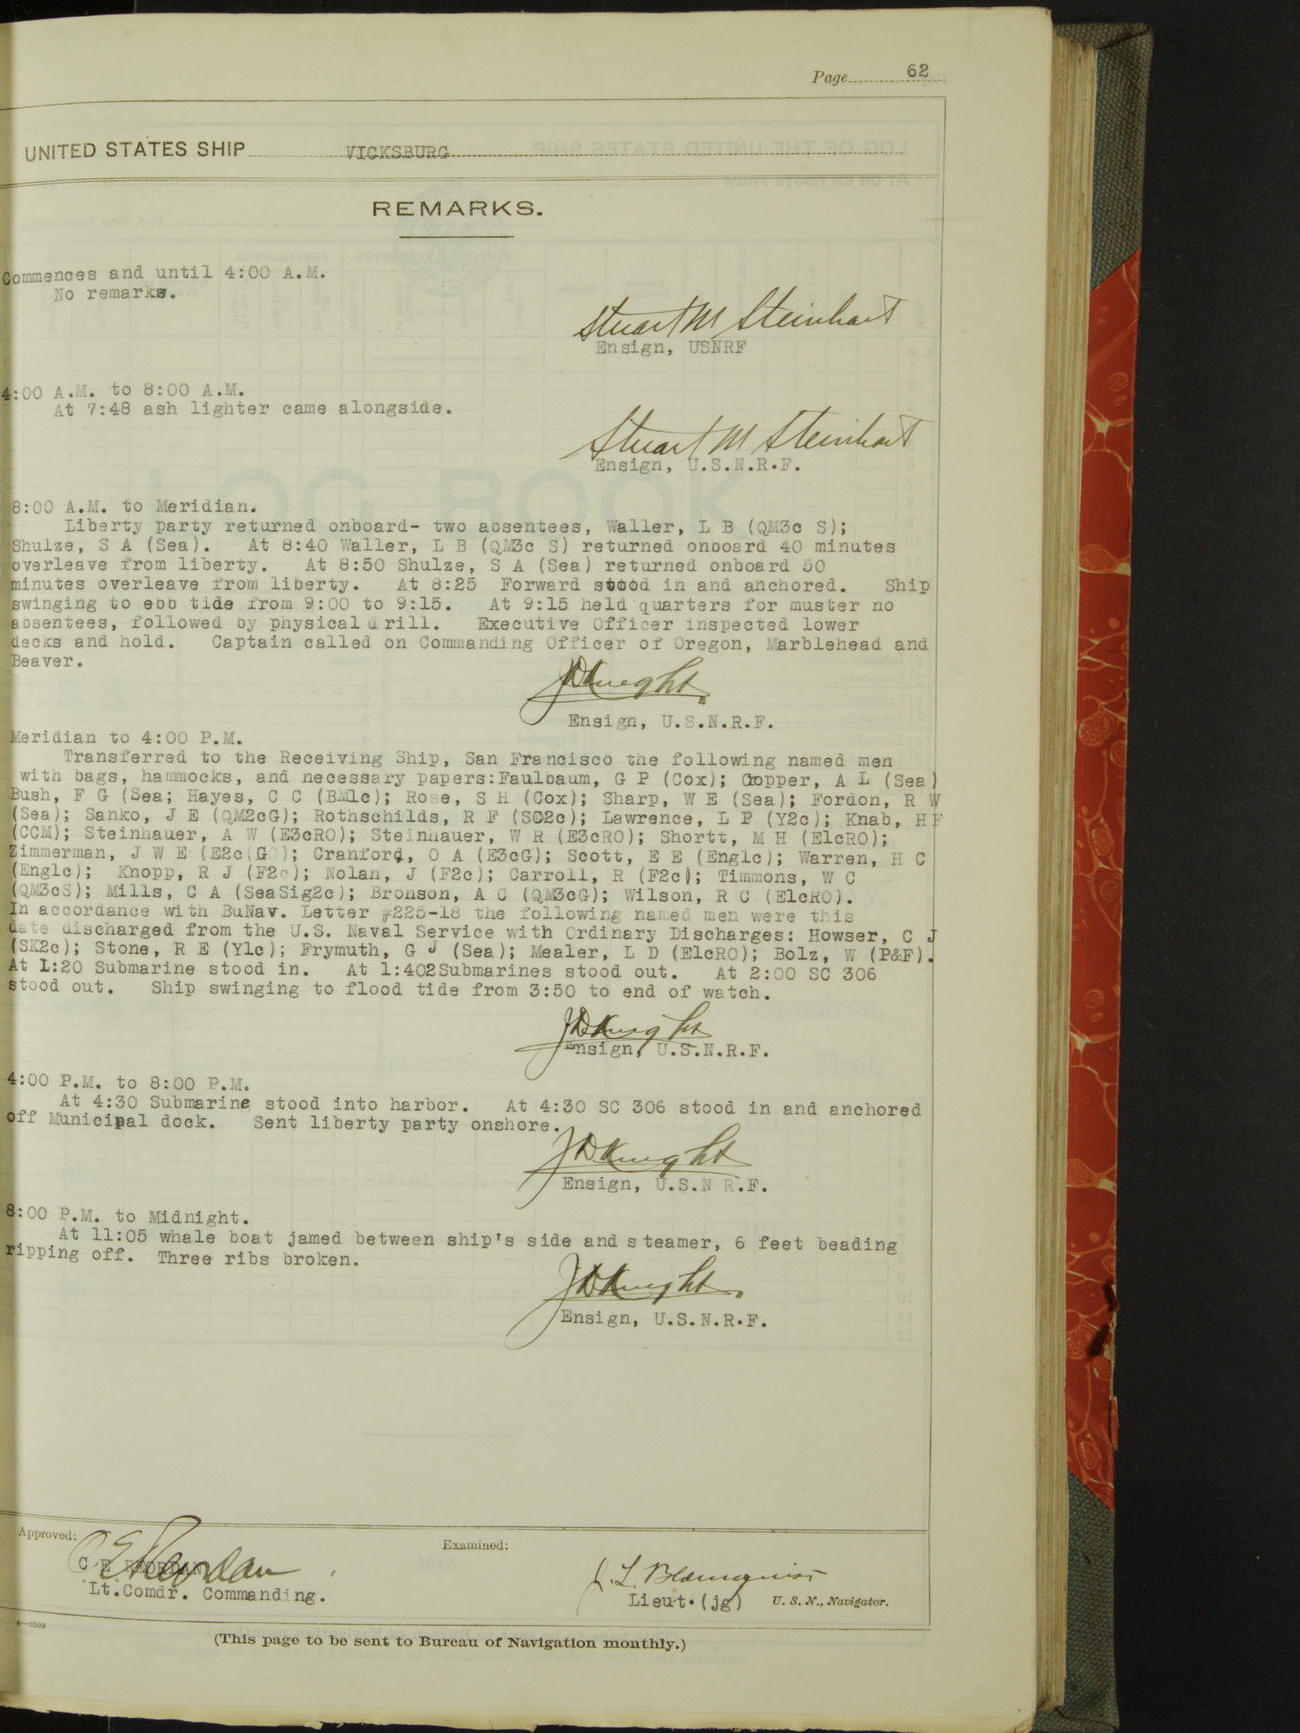 Page 62
UNITED STATES SHIP VICKSBURG
REMARKS.
Commences and until 4:00 A.M.
No remarks.
Stuart M Steinhart
Ensign, USNRF
4:00 A.M. to 8:00 A.M.
At 7:48 ash lighter came alongside.
Stuart M Steinhart
Ensign, U.S.N.R.F.
8:00 A.M. to Meridian.
Liberty party returned onboard- two absentees, Waller, L B (QM3c S);
Shulze, S A (Sea). At 8:40 Waller, L B (QM3c S) returned onboard 40 minutes
overleave from liberty. At 8:50 Shulze, S A (Sea) returned onboard 50
minutes overleave from liberty. At 8:25 Forward stood in and anchored. Ship
swinging to ebb tide from 9:00 to 9:15. At 9:15 held quarters for muster no
absentees, followed by physical drill. Executive Officer inspected lower
decks and hold. Captain called on Commanding Officer of Oregon, Marblehead and
Beaver.
JDKnight.
Ensign, U.S.N.R.F.
Meridian to 4:00 P.M.
Transferred to the Receiving Ship, San Francisco the following named men
with bags, hammocks, and necessary papers:Faulbaum, G P (Cox); Gopper, A L (Sea)
Bush, F G (Sea; Hayes, C C (BM1c); Rose, S H (Cox); Sharp, W E (Sea); Fordon, R W
(Sea); Sanko, J E (QM2cG); Rothschilds, R F (SC2c); Lawrence, L P (Y2c); Knab, H F
(CCM); Steinhauer, A W (E3cRO); Steinhauer, W R (E3cRO); Shortt, M H (ElcRO);
Zimmerman, J W E (E2c(G ); Cranford, O A (E3cG); Scott, E E (Englc); Warren, H C
(Englc); Knopp, R J (F2c); Nolan, J (F2c); Carroll, R (F2c); Timmons, W C
(QM3cS); Mills, C A (SeaSig2c); Bronson, A C (QM3cG); Wilson, R C (ElcRO).
In accordance with BuNav. Letter #225-18 the following named men were this
date discharged from the U.S. Naval Service with Ordinary Discharges: Howser, C J
(SK2c); Stone, R E (Ylc); Frymuth, G J (Sea); Mealer, L D (ElcRO); Bolz, W (P&F).
At 1:20 Submarine stood in. At 1:402Submarines stood out. At 2:00 SC 306
stood out. Ship swinging to flood tide from 3:50 to end of watch.
JDKnight
Ensign, U.S.N.R.F.
4:00 P.M. to 8:00 P.M.
At 4:30 Submarine stood into harbor. At 4:30 SC 306 stood in and anchored
off Municipal dock. Sent liberty party onshore.
JDKnight
Ensign, U.S.N R.F.
8:00 P.M. to Midnight.
At 11:05 whale boat jamed between ship's side and steamer, 6 feet beading
ripping off. Three ribs broken.
JDKnight.
Ensign, U.S.N.R.F.
Approved:
Examined:
C E Reordan
C E REORDAN
Lt.Comdr. Commanding.
J. L. Blomquist
Lieut.(jg) U. S. N., Navigator.
(This page to be sent to Bureau of Navigation monthly.)